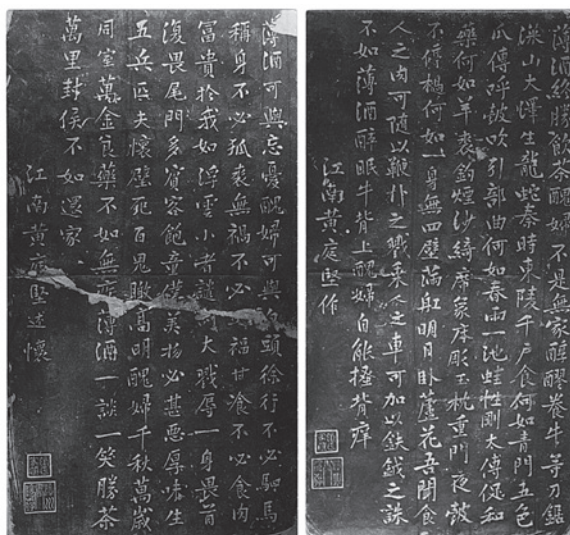 薄酒終勝飲茶醜婦不是無家醇醪養牛等刀鋸
深山大澤生龍蛇秦時東陵千戶食何如青門五色
瓜傳呼鼓吹引部曲何如春雨一池蛙性剛太傅促和
藥何如羊裘釣煙沙綺席象床彫玉枕重門夜鼓
不停撾何如一身無四壁滿船明月臥蘆花吾聞食
人之肉可隨以鞭扑之戮乘人之車可加以鈇鉞之誅
不如薄酒醉眠牛背上醜婦自能搔背痒
江南黃庭堅作
薄酒可與忘憂醜婦可與頭徐行不必駟馬
稱身不必狐裘無禍不必福甘飡不必食肉
富貴於我如浮雲小者譴大戮辱一身畏首
復畏尾門多賓客飽童僕美物必甚惡厚味生
五兵匹夫懷璧死百鬼瞰高明醜婦千秋萬歲
同室萬金良藥不如無薄酒一談一笑勝茶
萬里封侯不如還家
江南黃庭堅述懷